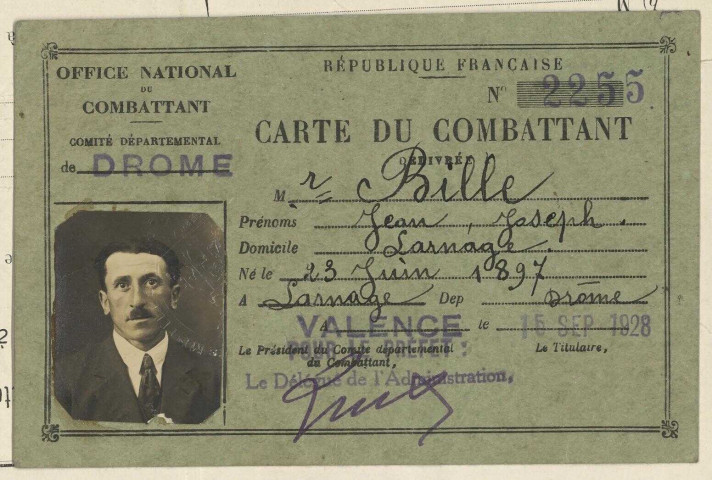 RÉPUBLIQUE FRANÇAISE
OFFICE NATIONAL
DU
COMBATTANT
COMITÉ DÉPARTEMENTAL
de DROME
N° 2255
CARTE DU COMBATTANT
DÉLIVRÉE A
Mr Bille
Prénoms Jean, Joseph.
Domicile Larnage.
Né le 23 Juin 1897
A Larnage Dep Drôme
A VALENCE le 15 SEP 1928
POUR LE PREFET:
Le Président du Comité départemental
du Combattant,
Le Titulaire,
Le Délégué de l'Administration,